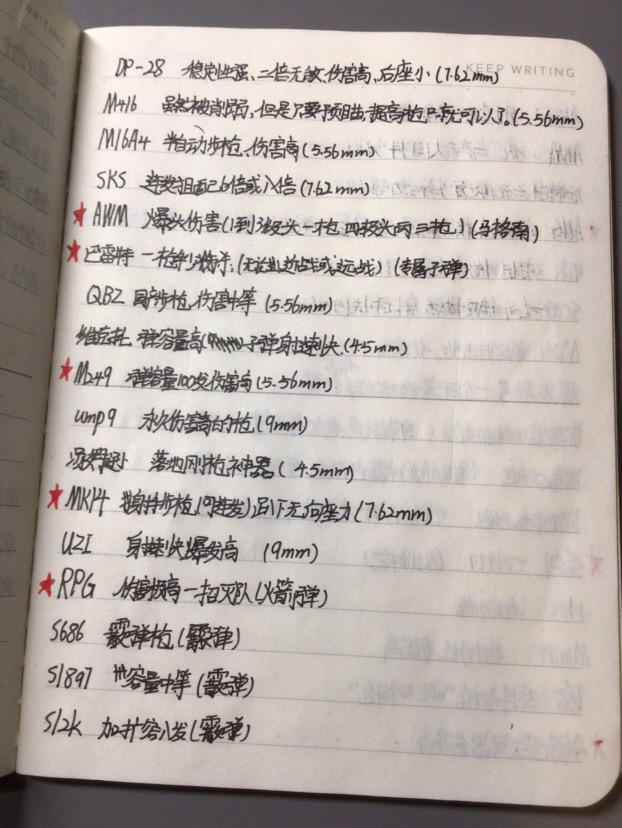 KEEP WRITING
DP-28 稳定性强、二倍无敌、伤害高、后座小(7.62mm)
M416 虽然被削弱,但是只要预瞄,提高枪口就可以了。(5.56mm)
M16A4 半自动步枪、伤害高(5.56mm)
SKS 连发狙配6倍或八倍(7.62mm)
★AWM 爆头伤害(1到3级头一枪 四级头两三枪)(马格南)
★巴雷特 一枪(无论近战或远战)(专属子弹)
QBZ 国步枪、伤害中等(5.56mm)
弹容量高 子弹射速快.(4.5mm)
★M249 弹容量100发伤害高(5.56mm)
ump9 伤害高的枪(9mm)
汤姆逊 落地刚枪神器(4.5mm)
★MK14 步枪(可连发)趴下无后座力(7.62mm)
UZI 射速快爆发高 (9mm)
★RPG 伤害极高一招灭队(火箭弹)
S686 霰弹枪(霰弹)
S1897 容量中等(霰弹)
S12K 加扩容八发(霰弹)